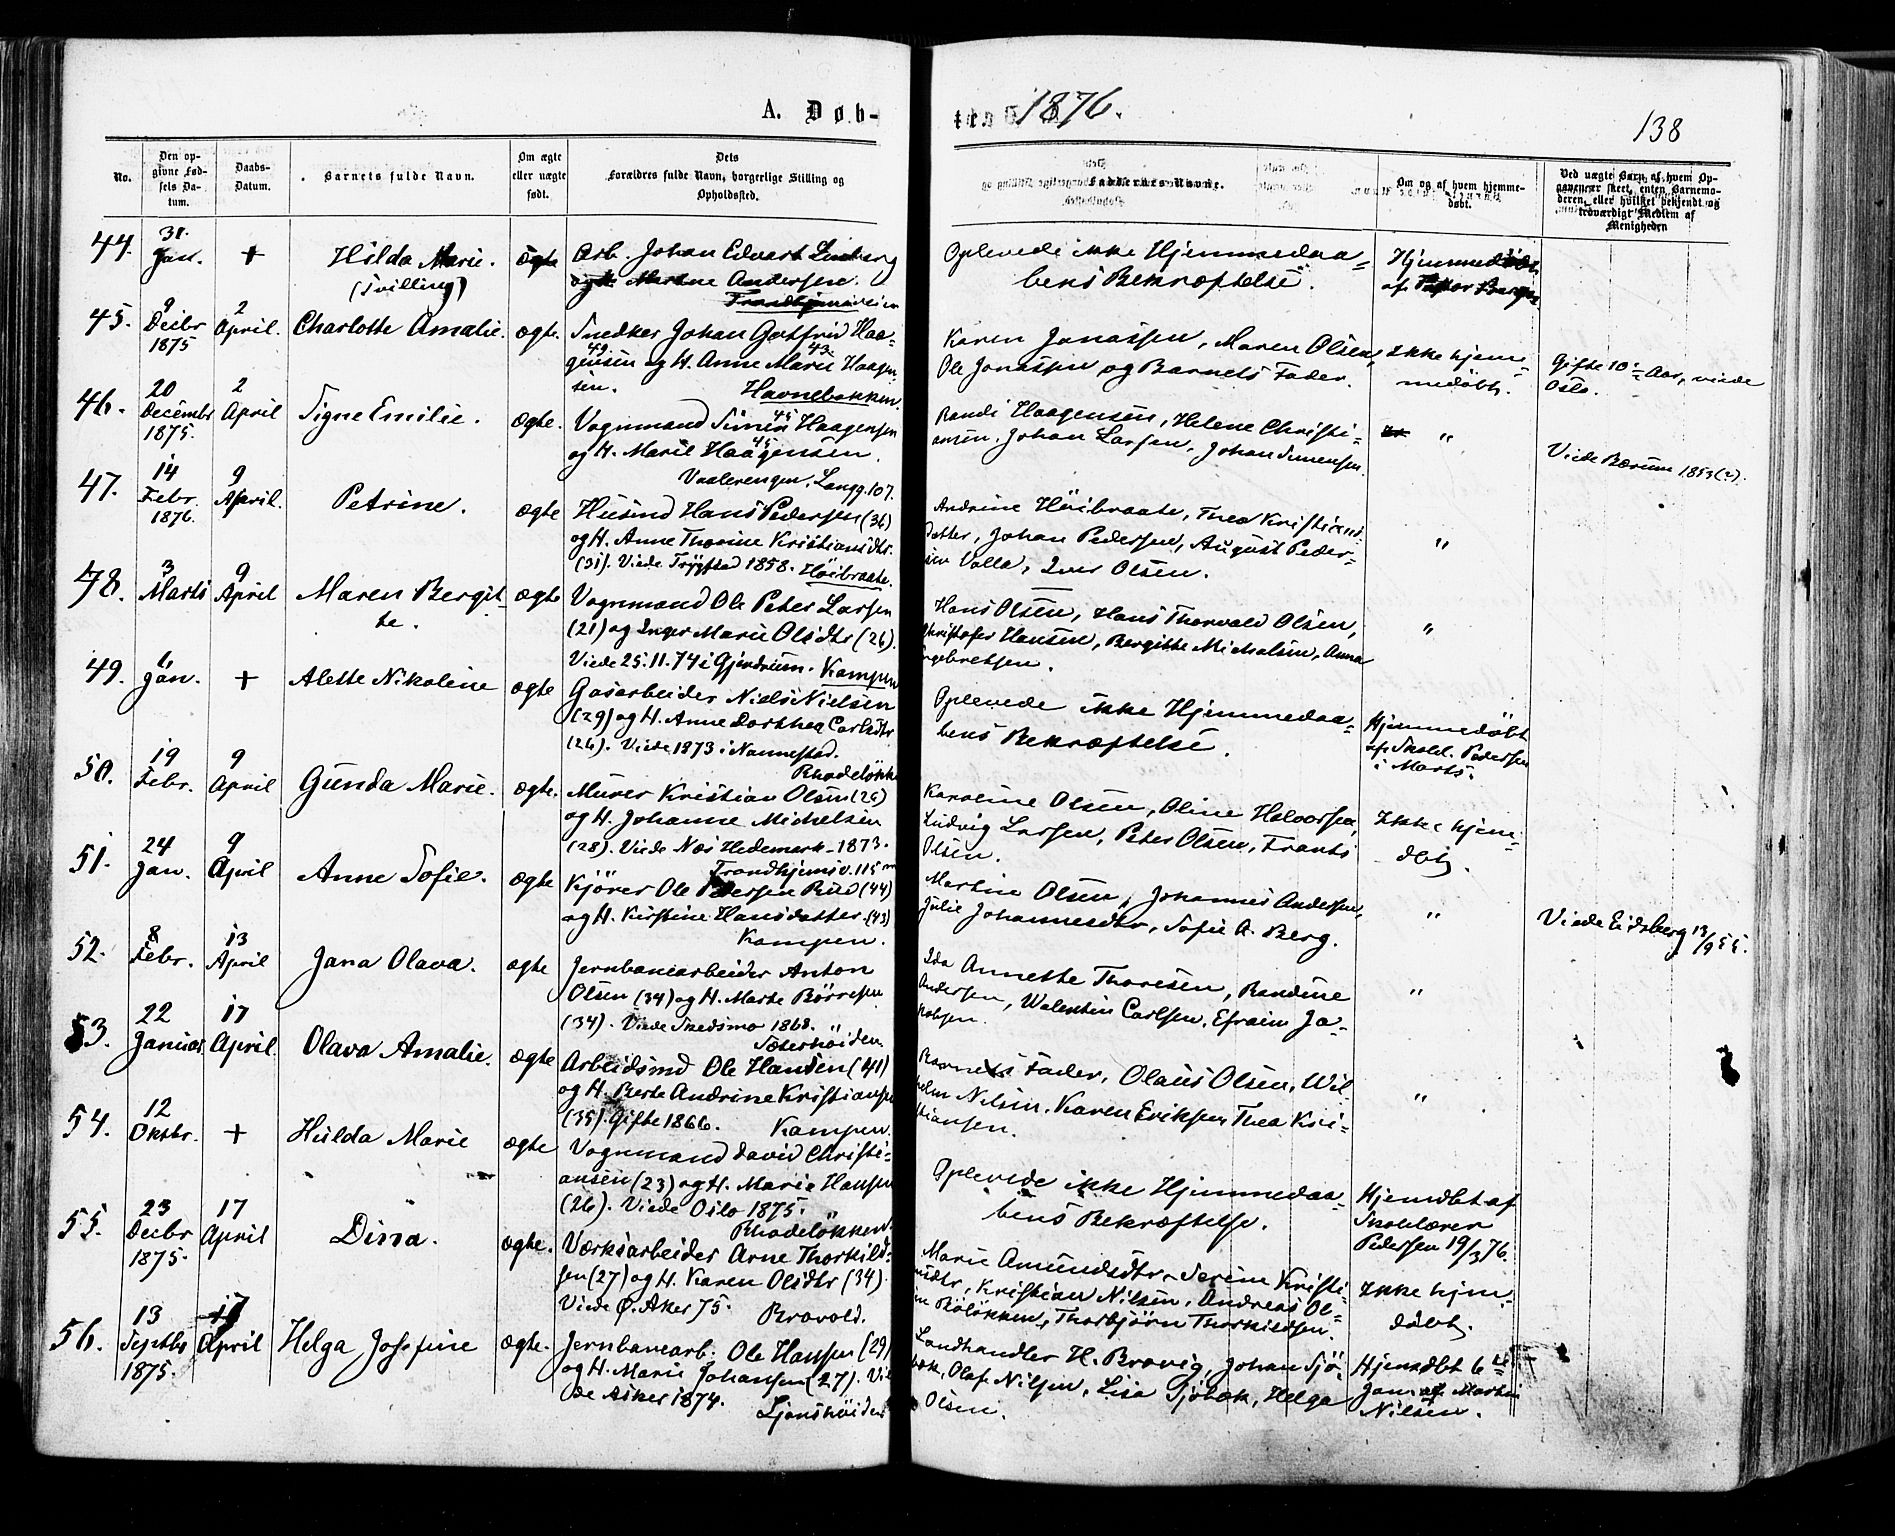 A. Døb-
No.
Den op-
givne Fød-
sels Da-
tum.
Daabs-
Datum.
Barnets fulde Navn.
Om ægte
eller uægte
født.
Dets
Forældres fulde Navn, borgerlige Stilling og
Opholdssted.
44.
31.
Jan.
+
Hilda Marie.
(Tvilling)
ægte
Arb. Johan Edvart Lindberg
og H. Martine Andersen.
45.
9
Decbr
1875
2
April.
Charlotte Amalie.
ægte.
Snedker Johan Gotfrid Haa-
49 43
gensen og H. Anne Marie Haagen-
sen. Havnebakken.
46.
20
Decembr
1875.
2
April
Signe Emilie.
ægte.
45
Vognmand Simen Haagensen
45
og H. Marie Haagensen.
Vaalerengen, Langg. 107.
47.
14
Febr.
1876.
9
April.
Petrine.
ægte
Husmd Hans Pedersen (36)
og H. Anne Thorine Kristiansdtr.
(31). Viede Trygstad 1858. Höibraate.
48.
3
Marts
9
April
Maren Bergit-
te.
ægte
Vognmand Ole Peter Larsen
(21) og Inger Marie Olsdtr (26).
Viede 25.11.74 i Gjerdrum. Kampen
49.
6
Jan.
+
Alette Nikoline
ægte
Gasarbeider Niels Nielsen
(29) og H. Anne Dorthea Carlsdtr
(26). Viede 1873 i Nannestad.
Rhodeløkk
50.
19
Febr.
9
April
Gunda Marie.
ægte.
Murer Kristian Olsen (26)
og H. Johanne Michelsen
(28). Viede Næs Hedemark 1873.
Trondhjemsv. 115
51.
24
Jan.
9
April
Anne Sofie.
ægte
Kjörer Ole Pedersen Rud (44)
og H. Kirstine Hansdatter (43)
Kampen.
52.
8
Febr.
13
April
Jana Olava.
ægte
Jernbanearbeider Anton
Olsen (34) og H. Marte Börresen
(34). Viede Skedsmo 1868.
53.
22
Januar
17
April
Olava Amalie.
ægte
Arbeidsmd Ole Hansen (41)
og H. Berte Andrine Kristiansen
(35). Gifte 1866. Kampen.
54.
12
Oktbr.
+
Hulda Marie
ægte
Vognmand David Christi-
ansen (23) og H. Marie Hansen
(26). Viede Oslo 1875.
Rhodeløkken
55.
23
Decbr
1875.
17
April
Dina.
ægte.
Værksarbeider Arne Thorkild-
sen (27) og H. Karen Olsdtr (34).
Viede Ø. Aker 75. Bravold.
56.
13
Septbr
1875.
17
April
Helga Josefine
ægte.
Jernbanearb. Ole Hansen (29)
og H. Marie Johansen (27). Vie-
de Asker 1874.
Ljanshöiden
1876.
138
Faddernes Navne.
Om og af hvem hjemme-
døbt.
Ved uægte Barn, af hvem Op-
gaven er skeet, enten Barnemo-
deren, eller hvilket bekjendt og
troværdigt Medlem af
Menigheden
Oplevede ikke Hjemmedaa-
bens Bekræftelse.
Hjemmedöbt
af Pastor
Karen Jonassen, Maren Olsen,
Ole Jonassen og Barnets Fader.
Ikke hjem-
medøbt.
Gifte 10 Aar, viede
Oslo.
Randi Haagensen, Helene Christi-
ansen, Johan Larsen, Johan Simensen.
"
Viede Bærum 1853 (?).
Andrine Höibraate, Thea Kristians
datter, Johan Pedersen, August Peder-
sen Valla, Iver Olsen.
"
Hans Olsen, Hans Thorvald Olsen,
Christofer Hansen, Bergitte Michalsen, Anna
Engebretsen.
"
Oplevede ikke Hjemmedaa-
bens Bekræftelse.
Hjemmedöbt
af Skolel. Pedersen
i Marts.
Karoline Olsen, Oline Halvorsen,
Ludvig Larsen, Peter Olsen, Frants
Olsen.
Ikke hjem-
dbt.
Martin Olsen, Johannes Andersen,
Julie Johannesdtr, Sofie A. Berg.
"
Viede Eidsberg 13/9 55.
Ida Annette Thoresen, Randine
Andersen, Walentin Carlsen, Efraim Ja-
kobsen.
"
Barnets Fader, Olaus Olsen, Wil-
helm Nilsen, Karen Eriksen, Thea Kri-
stiansen.
"
Oplevede ikke Hjemmedaa-
bens Bekræftelse.
Hjemdbt af
Skolelærer
Pedersen 19/3 76.
Marie Amundsdtr, Serine Kristi-
ansdtr, Kristian Nilsen, Andreas Ol-
sen Böløkken, Thorbjörn Thorkildsen.
Ikke hjem-
döbt.
Landhandler H. Bravig, Johan Sjö-
bæk, Olaf Nilsen, Lisa Sjöbæk, Helga
Olsen.
Hjemdbt 6te
Jan. af Martin
Nilsen.